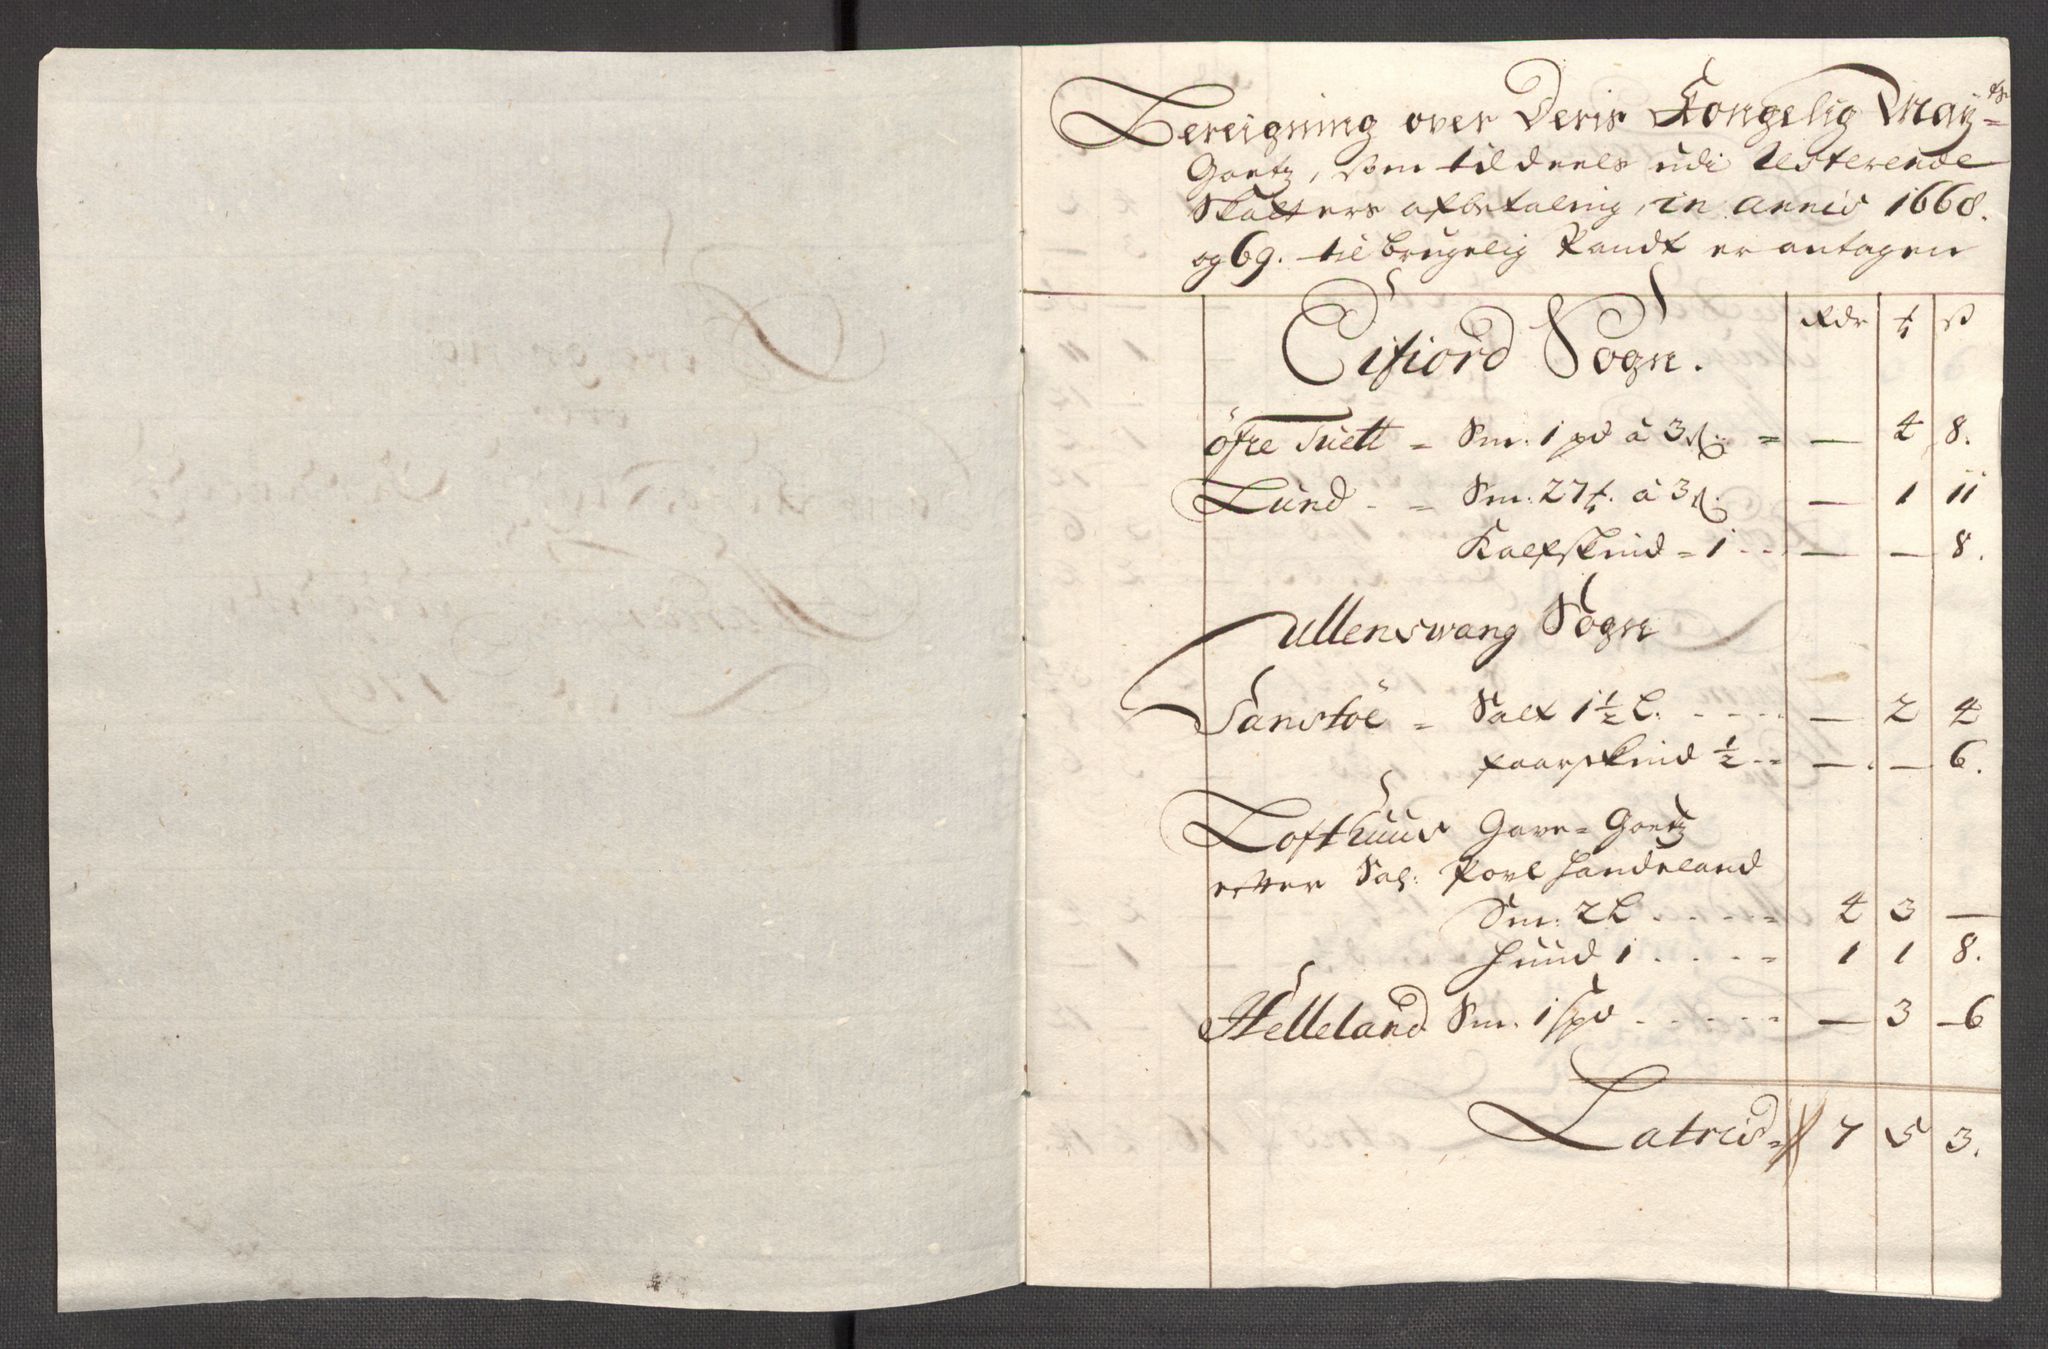 Bereigning over Deris Kongelig May:ts
Goetz, som til deels udi Resterende
Skatters afbetaling, in annis 1668.
og 69. til brugelig Pandt er antagen
Rdr ₰ ß
Eifiord Sogn.
öfre Tuett = Sm: 1 pd à 3 Rd = — 4 8.
Lund - = Sm: 27 ₰. à 3 Rd. — 1 11
Kalfskind = 1 - - — — 8.
Ullenswang Sogn
Sanstöe = Salt 1½ L. - - - - — 2 4
faarskind ½ - - — — 6.
Lofthuus Gave = Goetz
efter Sal: Povl Handeland
Sm: 2 L - - - - - 4 3 —
Huud 1 - - - - 1 1 8.
Helleland Sm. 1 spd - - - - - — 3 — 6
Latus = 7 5 3.